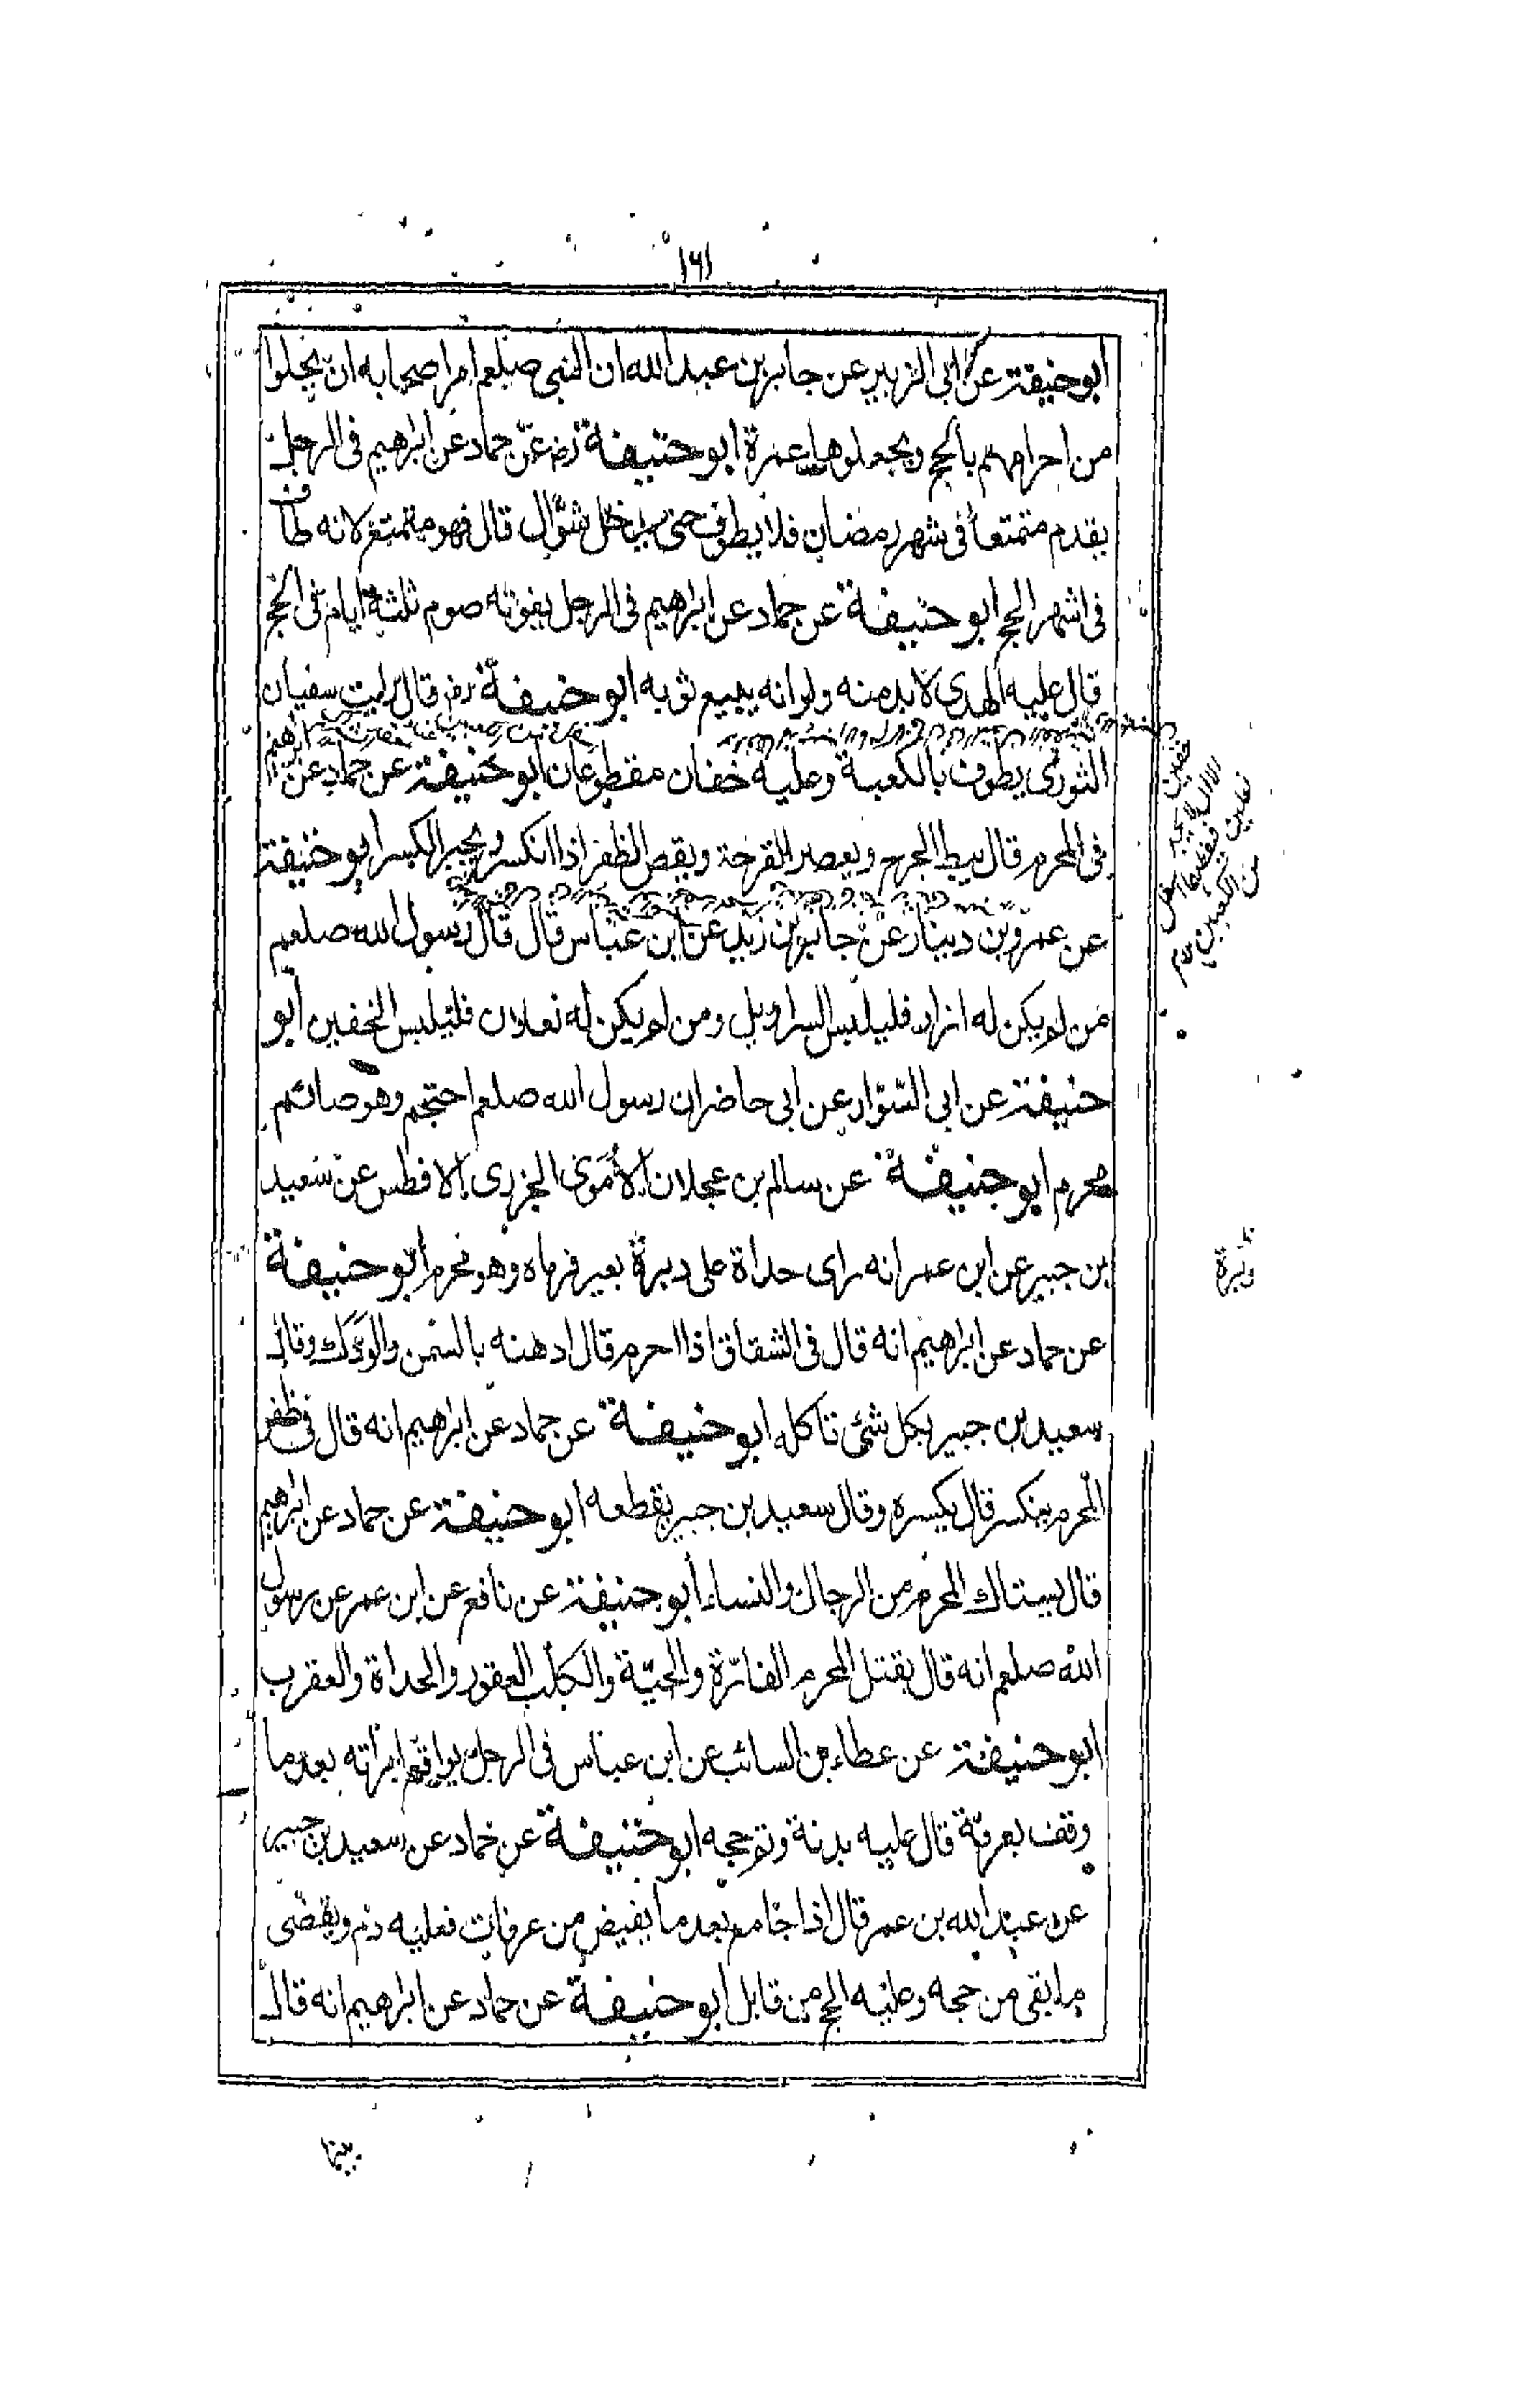 ١٦١
ابو حنيفة عن ابى الزبير عن جابر بن عبد الله ان النبى صلعم امر اصحابه ان يحلوا
من احرامهم بالحج ويجعلوها عمرة ابو حنيفة رض عن حماد عن ابراهيم فى الرجل
يقدم متمتعا فى شهر رمضان فلا يطوف حتى يدخل شوال قال فهو متمتع لانه طاف
فى اشهر الحج ابو حنيفة عن حماد عن ابراهيم فى الرجل يفوته صوم ثلثة ايام فى الحج
قال عليه الهدى لا بد منه ولو انه يبيع ثوبه ابو حنيفة رض قال رايت سفيان
الثورى يطوف بالكعبة وعليه خفان مقطوعان ابو حنيفة عن حماد عن ابراهيم
فى المحرم قال يبط الجرح ويعصر القرحة ويقص الظفر اذا انكسر ويجبر الكسر ابو حنيفة
عن عمرو بن دينار عن جابر بن زيد عن ابن عباس قال قال رسول الله صلعم
من لم يكن له ازار فليلبس السراويل ومن لم يكن له نعلان فليلبس الخفين ابو
حنيفة عن ابى السوار عن ابى حاضر ان رسول الله صلعم احتجم وهو صائم
محرم ابو حنيفة عن سالم بن عجلان الاموى الجزرى الافطس عن سعيد
بن جبير عن ابن عمر انه راى حداة على دبرة بعير فرماه وهو محرم ابو حنيفة
عن حماد عن ابراهيم انه قال فى الشقاق اذا احرم قال ادهنه بالسمن والودك وقال
سعيد بن جبير بكل شئ تاكله ابو حنيفة عن حماد عن ابراهيم انه قال فى ظفر
المحرم ينكسر قال يكسره وقال سعيد بن جبير يقطعه ابو حنيفة عن حماد عن ابراهيم
قال يستاك المحرم من الرجال والنساء ابو حنيفة عن نافع عن ابن عمر عن رسول
الله صلعم انه قال يقتل المحرم الفارة والحية والكلب العقور والحداة والعقرب
ابو حنيفة عن عطاء بن السائب عن ابن عباس فى الرجل يواقع امرأته بعد ما
وقف بعرفة قال عليه بدنة وتم حجه ابو حنيفة عن حماد عن سعيد بن جبير
عن عبد الله بن عمر قال اذا جامع بعد ما يفيض من عرفات فعليه دم ويقضى
ما بقى من حجه وعليه الحج من قابل ابو حنيفة عن حماد عن ابراهيم انه قال
دبرة